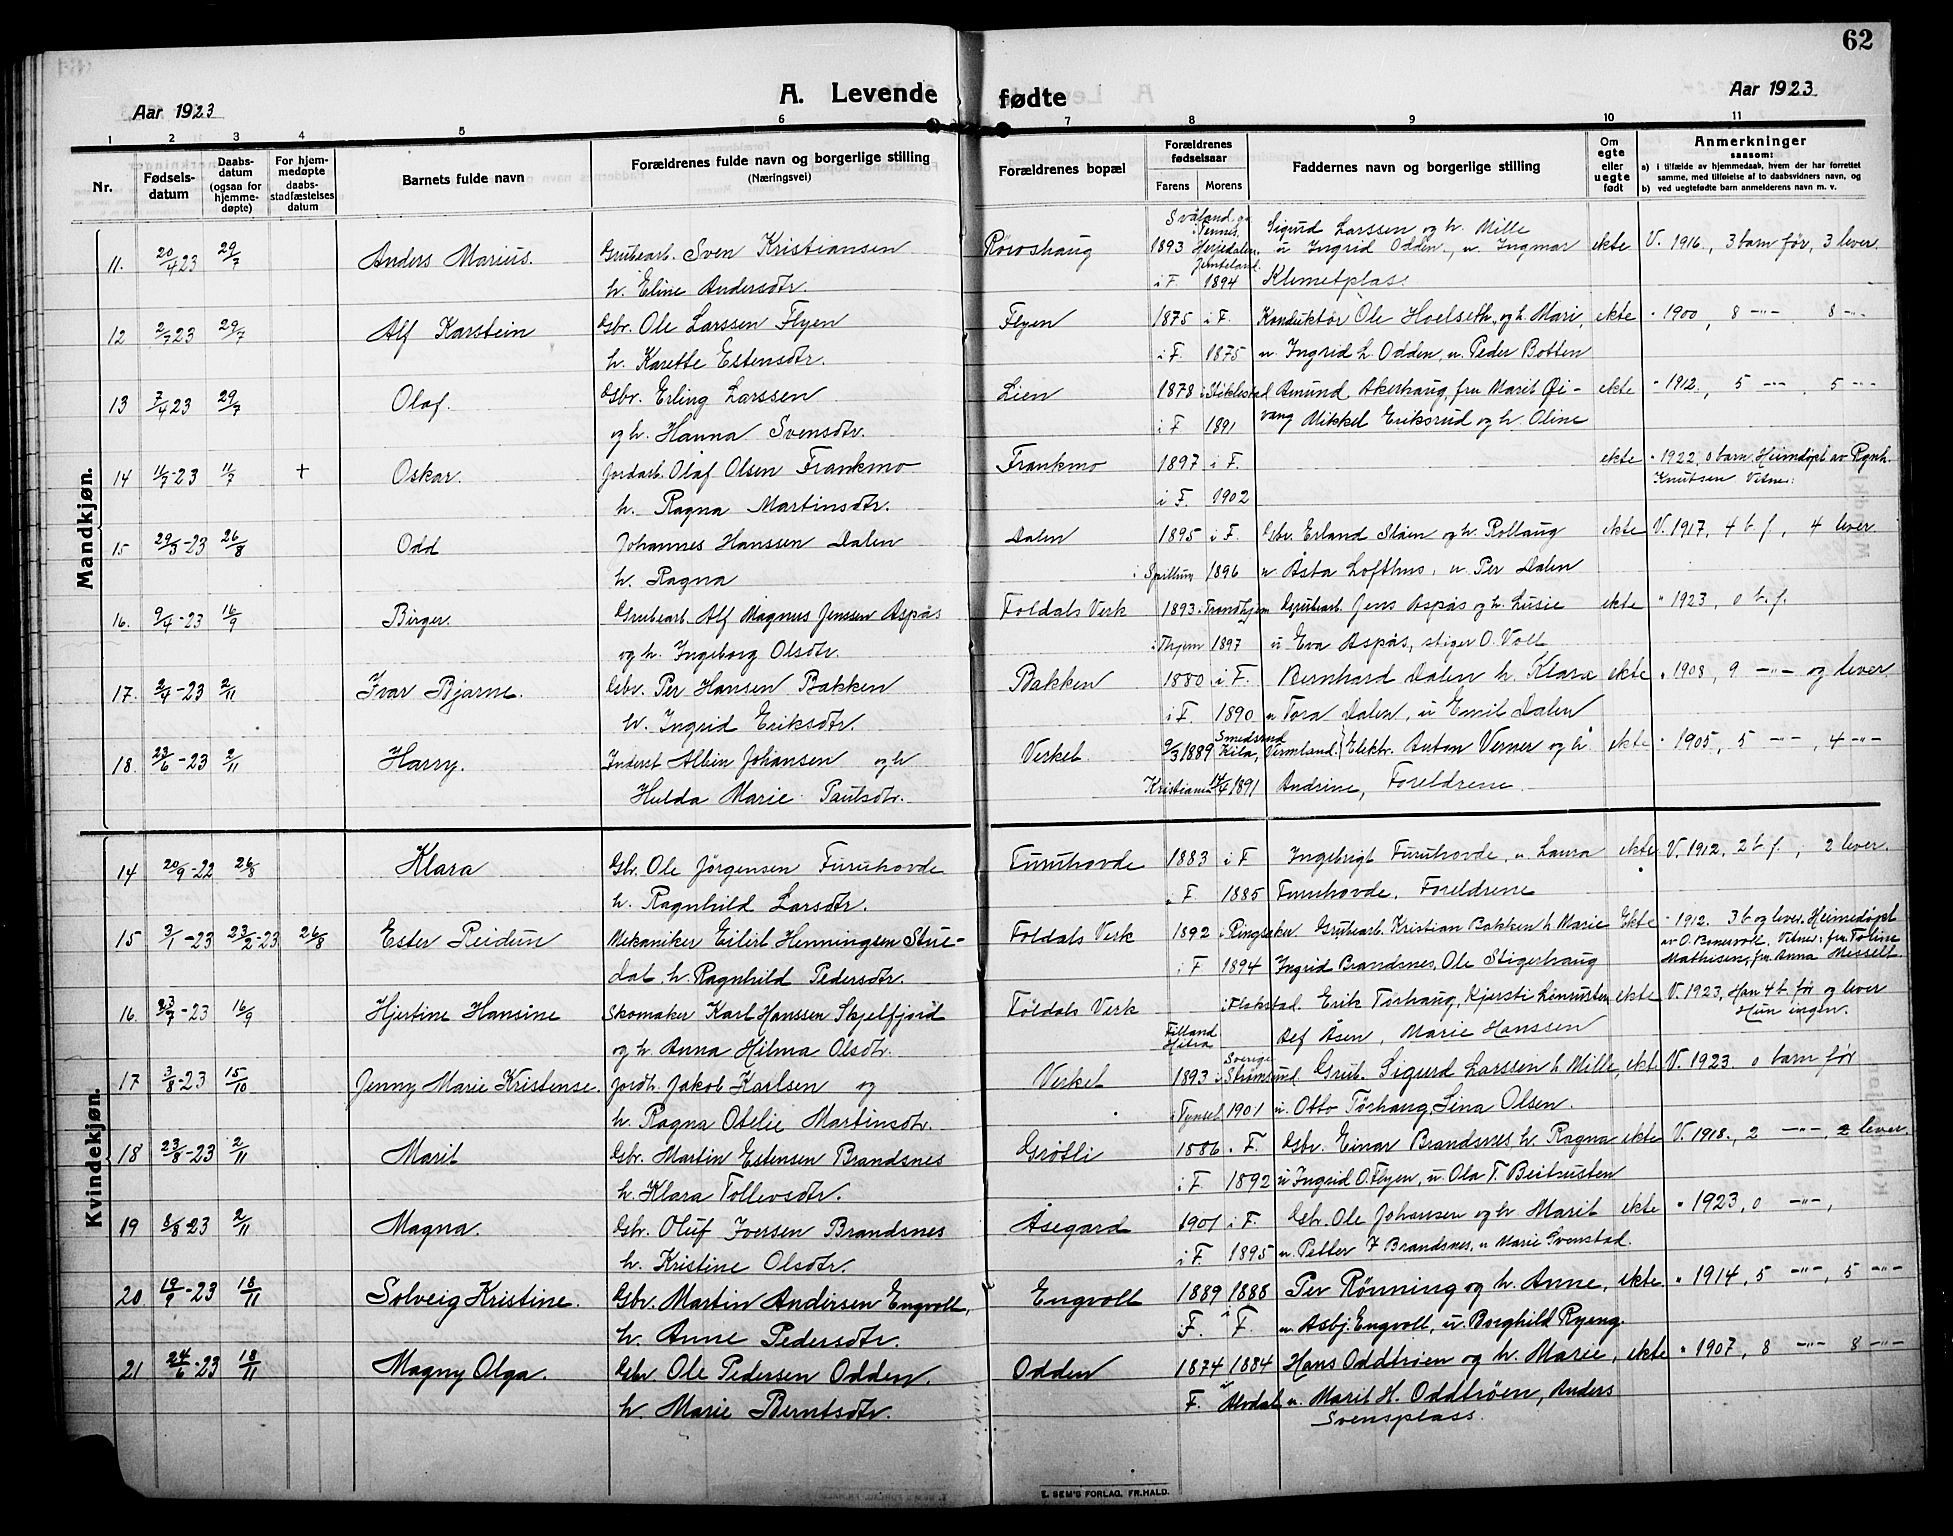 62
A. Levende fødte
Aar 1923
Aar 1923
1 2 3 4 5 6 7 8 9 10 11
Nr.
Fødsels-datum
Daabs-datum (ogsaa for hjemme-døpte)
For hjem-medøpte daabs-stadfæstelses datum
Barnets fulde navn
Forældrenes fulde navn og borgerlige stilling (Næringsvei)
Forældrenes bopæl
Forældrenes fødselsaar
Farens Morens
Faddernes navn og borgerlige stilling
Om egte eller uegte født
Anmerkninger
saasom:
a) i tilfælde av hjemmedaab, hvem der har forrettet samme, med tilføielse af to daabsvidners navn, og
b) ved uegtefødte barn anmelderens navn m. v.
Mandkjøn.
11. 20/4 23 29/7 Anders Marius. Grubearb. Sven Kristiansen Röroshaug 1893 Sigurd Larssen og h. Mille ekte V. 1916, 3 barn før, 3 lever
h. Eline Andersdtr. i F. 1894 u Ingrid Odden, u. Ingmar
Klemetplas.
12 2/7 23 29/7 Alf Karstein Gbr. Ole Larssen Flyen Flyen 1875 i F. Konduktör Ole Hoelseth, og h. Mari, ekte " 1900, 8 -"- 8 -"-
h. Karette Estensdtr. i F. 1875 u. Ingrid L. Odden, u. Peder Botten
13 7/4 23 29/7 Olaf. Gbr. Erling Larssen Lien 1878 i Stiklestad Amund Akerhaug, fru Marit Øi- ekte " 1912, 5 -"- 5 -"-
og h. Hanna Svensdtr. i F. 1891 vang Mikkel Eriksrud og h. Oline
14 11/7-23 11/7 + Oskar. Jordarb. Olaf Olsen Frankmo Frankmo 1897 i F. ekte " 1922, 0 barn. Heimdøpt av Rgnh.
h. Ragna Martinsdtr. i F. 1902 Knutsen Vitner:
15 29/3-23 26/8 Odd Johannes Hanssen Dalen Dalen 1895 i F. Gbr. Erland Støen og h. Rollaug ekte V. 1917, 4 b f, 4 lever
h. Ragna i Spillum 1896 u Åsta Lofthus, u. Per Dalen
16. 9/4-23 16/9 Birger. Grubearb. Alf Magnus Jenssen Aspås Foldals Verk 1893 Trondhjem Grubearb. Jens Aspås og h. Lusie ekte " 1923, 0 b. f.
og h. Ingeborg Olsdtr. i Thjem 1897 u Eva Aspås, stiger O. Voll
17. 2/9-23 2/11 Ivar Bjarne. Gbr. Per Hansen Bakken Bakken 1880 i F. Bernhard Dalen h. Klara ekte " 1908, 9 -"- og lever
h. Ingrid Eriksdtr. i F. 1890 u Tora Dalen, u Emil Dalen
18. 23/6-23 2/11 Harry. Albin Johansen og h Verket 9/3 1889 Kila, Vermland. Elektr. Anton Verner og h ekte " 1905, 5 -"-, 4 -"-
Hulda Marie Paulsdtr. Kristiania 1891 Andrine, Foreldrene.
Kvindekjøn.
14 20/9-22 26/8 Klara Gbr. Ole Jörgensen Furuhovde Furuhovde 1883 i F Ingebrigt Furuhovde, u Laura ekte V. 1912, 2 b f., 2 lever.
h. Ragnhild Larsdtr. i F. 1885 Furuhovde, Foreldrene
15 3/1-23 23/2-23 26/8 Ester Reidun Mekaniker Eilert Henningsen Stue- Foldals Verk 1892 i Ringsaker Grubearb. Kristian Bakken h Marie Ekte " 1912. 3 b og lever. Heimedøpt
dal h. Ragnhild Pedersdtr. i F 1894 Ingrid Brandsnes, Ole Stigerhaug Vitner: fru Toline
Mathisen, fr. Anna Misselt.
16. 16/9 Hjertine Hansine Skomaker Karl Hanssen Skjelfjord Foldals Verk i Flakstad. Erik Torhaug, Kjersti Lonrusten ekte V. 1923, Han 4 b. før og lever
og h Anna Hilma Olsdtr. Filland Hitra Alf Åsen, Marie Hanssen Hun ingen.
17 3/8-23 15/10 Jenny Marie Kristense. Jordb. Jakob Karlsen og Verket 1893 i Sverige Strömsund Grub. Sigurd Larssen h Mille, ekte V. 1923. 0 barn før
h. Ragna Otelie Martinsdtr. i Tynset 1901 u. Otto Törhaug, Lina Olsen.
18 23/8-23 2/11 Marit Gbr. Martin Estensen Brandsnes Grötli 1886 i F. Gbr. Einar Brandsnes h. Ragna ekte V. 1918, 2 -"-, 2 lever.
h. Klara Tollevsdtr. i F 1892 u Ingrid O. Flyen, u. Ola T. Beitrusten
19 8/8-23 2/11 Magna. Gbr. Oluf Iversen Brandsnes Åsegard 1901 i F. Gbr. Ole Johansen og h Marit ekte " 1923, 0 -"-,
h. Kristine Olsdtr. i F. 1895 u. Petter I Brandsnes, u Marie Svenstad.
20 19/9-23 18/11 Solveig Kristine. Gbr. Martin Andersen Engvoll, Engvoll 1889 1888 Per Rönning og h. Anne, ekte " 1914, 5 -"-, 5 -"-
h. Anne Pedersdtr. F. F. u. Asbj. Engvoll, u. Borghild Ryeng.
21 24/6-23 18/11 Magny Olga. Gbr Ole Pedersen Odden. Odden 1874 1884 Hans Oddtröen og h. Marie, ekte " 1907, 8 -"- 8 -"-
h. Marie Berntsdtr. F. Alvdal u. Marit H. Oddtröen, Anders
Svensplass.
E. SEM'S FORLAG, FR.HALD.